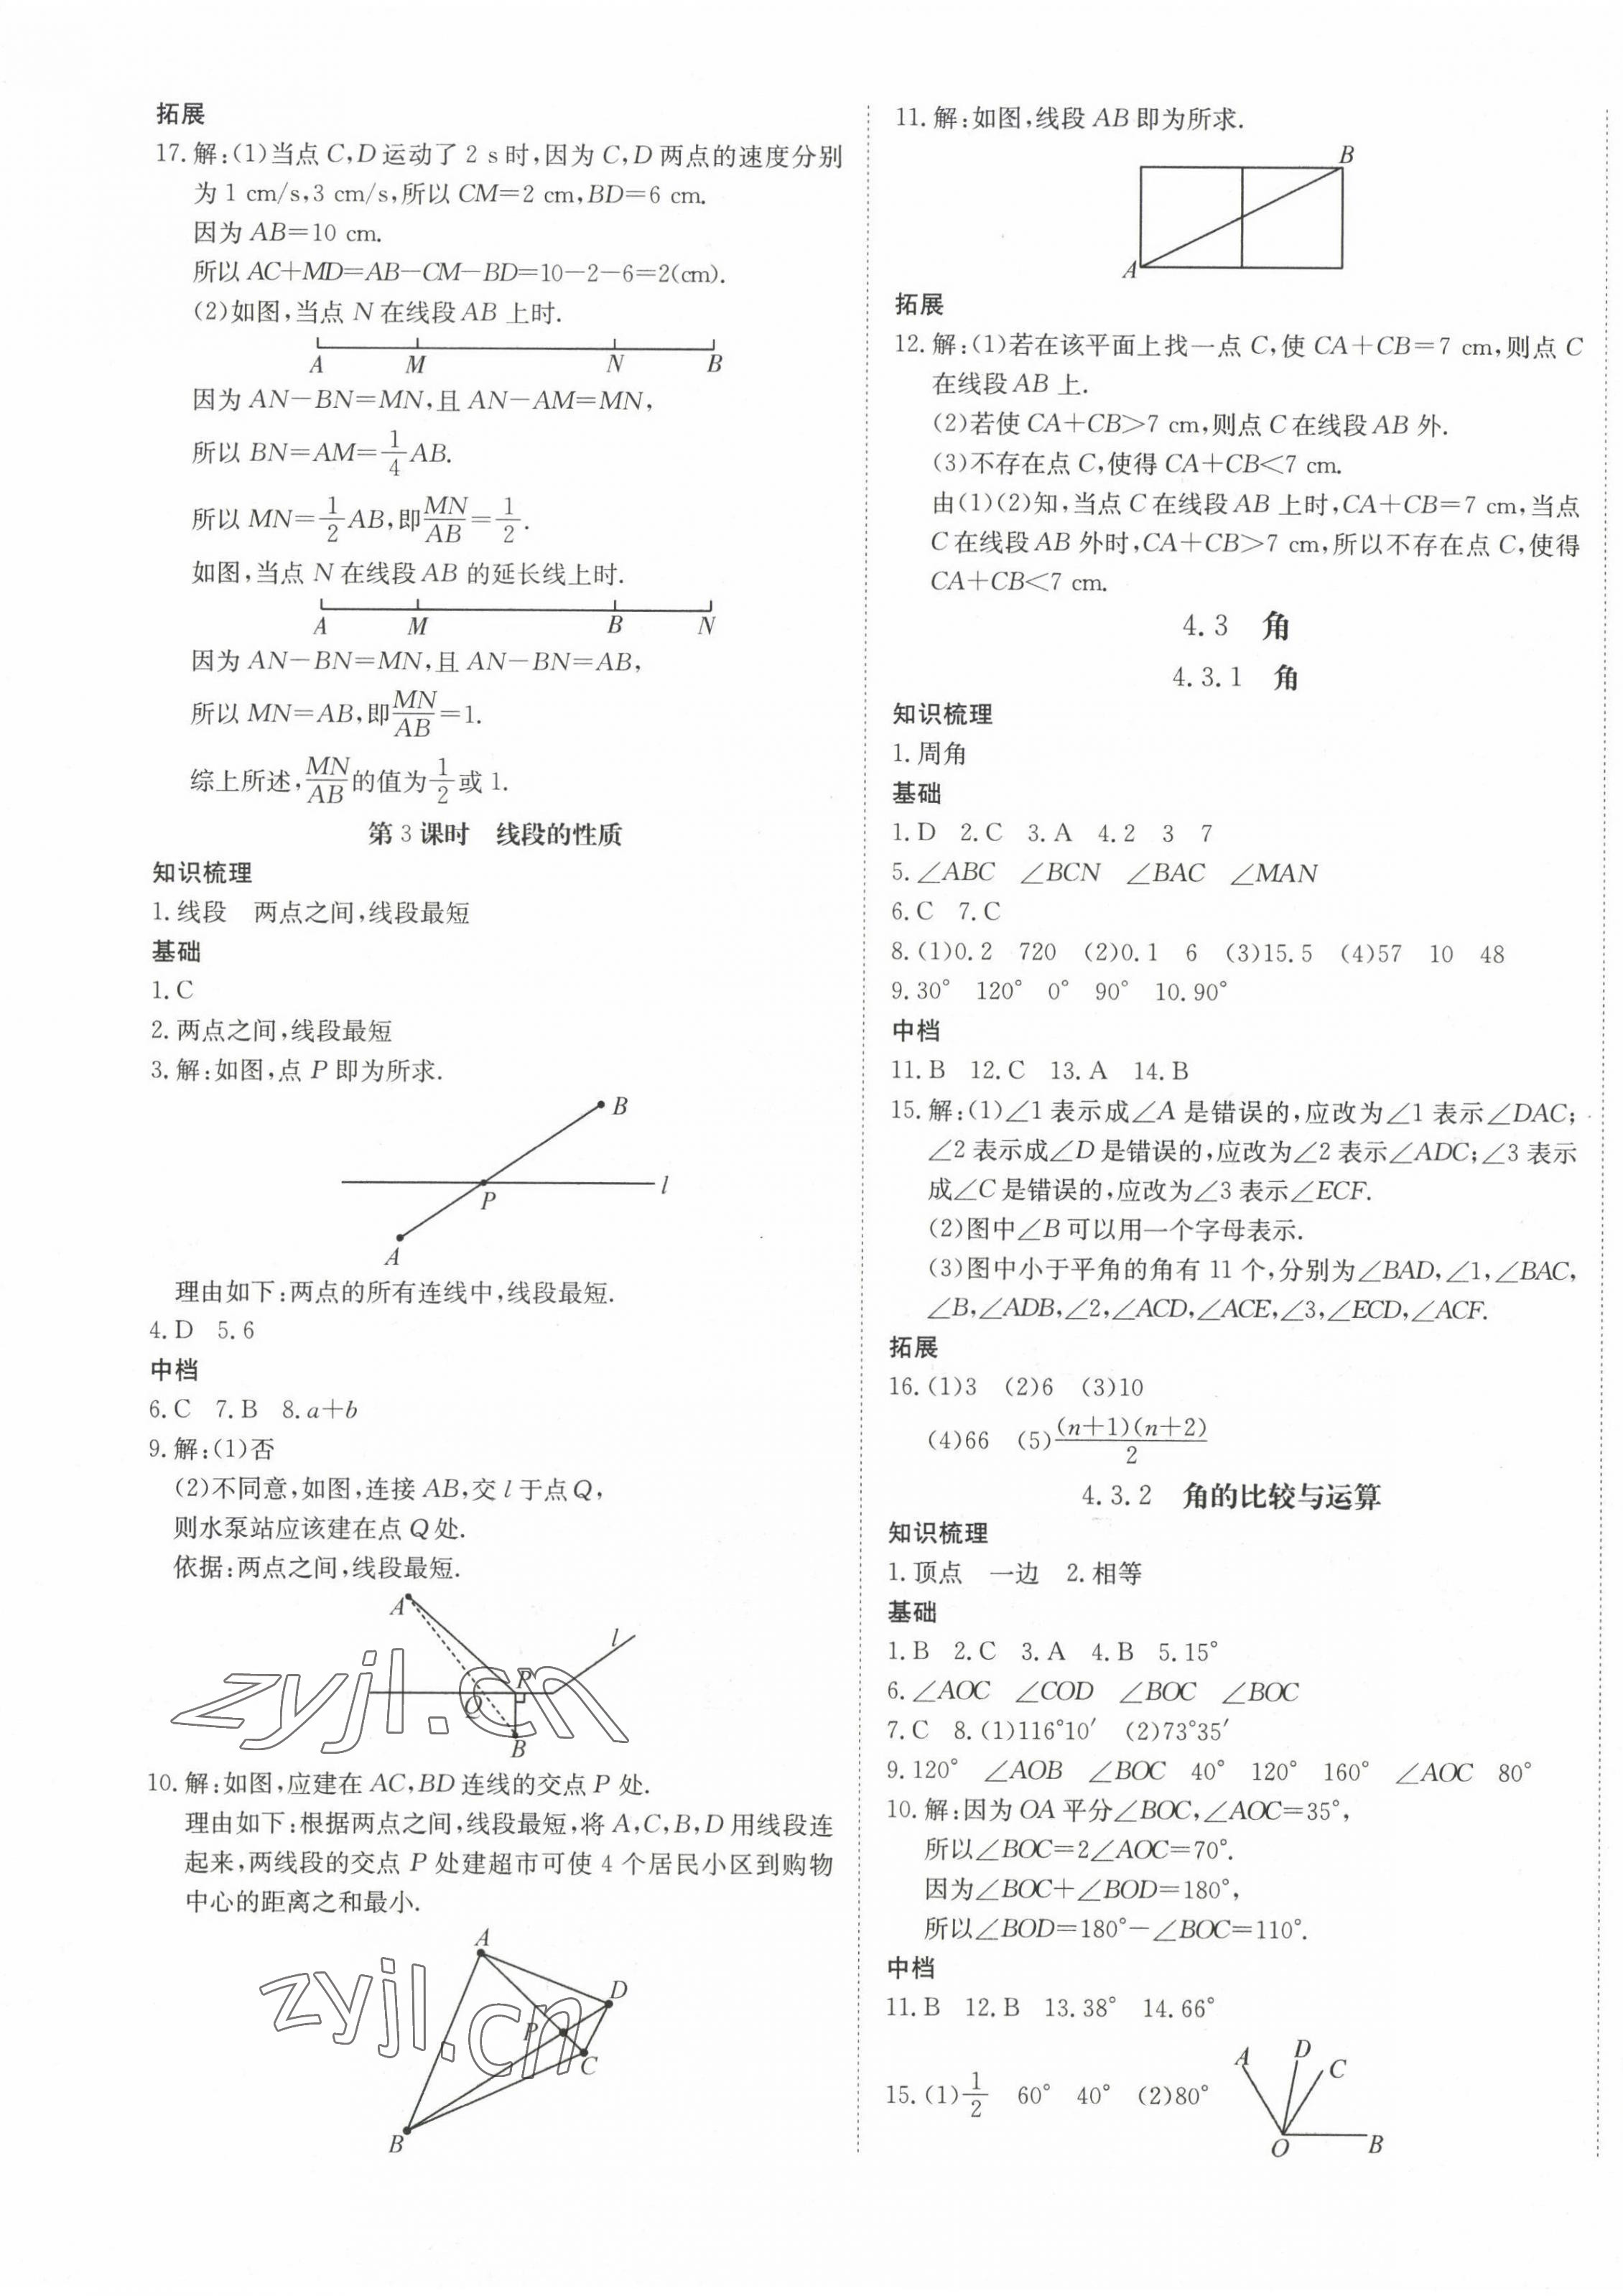 拓展
17.解:(1)当点C,D运动了2 s时,因为C,D两点的速度分别
为1 cm/s,3 cm/s,所以CM=2 cm,BD=6 cm.
因为AB=10 cm.
所以AC+MD=AB-CM-BD=10-2-6=2(cm).
(2)如图,当点N在线段AB上时.
A M N B
因为AN-BN=MN,且AN-AM=MN,
所以BN=AM=1/4AB.
所以MN=1/2AB,即MN/AB=1/2.
如图,当点N在线段AB的延长线上时.
A M B N
因为AN-BN=MN,且AN-BN=AB,
所以MN=AB,即MN/AB=1.
综上所述,MN/AB的值为1/2或1.
第3课时 线段的性质
知识梳理
1.线段 两点之间,线段最短
基础
1.C
2.两点之间,线段最短
3.解:如图,点P即为所求.
B
l
P
A
理由如下:两点的所有连线中,线段最短.
4.D 5.6
中档
6.C 7.B 8.a+b
9.解:(1)否
(2)不同意,如图,连接AB,交l于点Q,
则水泵站应该建在点Q处.
依据:两点之间,线段最短.
A
l
P
Q
B
zyjl.cn
10.解:如图,应建在AC,BD连线的交点P处.
理由如下:根据两点之间,线段最短,将A,C,B,D用线段连
起来,两线段的交点P处建超市可使4个居民小区到购物
中心的距离之和最小.
A
D
P
C
B
zyjl.cn
11.解:如图,线段AB即为所求.
B
A
拓展
12.解:(1)若在该平面上找一点C,使CA+CB=7 cm,则点C
在线段AB上.
(2)若使CA+CB>7 cm,则点C在线段AB外.
(3)不存在点C,使得CA+CB<7 cm.
由(1)(2)知,当点C在线段AB上时,CA+CB=7 cm,当点
C在线段AB外时,CA+CB>7 cm,所以不存在点C,使得
CA+CB<7 cm.
4.3 角
4.3.1 角
知识梳理
1.周角
基础
1.D 2.C 3.A 4.2 3 7
5.∠ABC ∠BCN ∠BAC ∠MAN
6.C 7.C
8.(1)0.2 720 (2)0.1 6 (3)15.5 (4)57 10 48
9.30° 120° 0° 90° 10.90°
中档
11.B 12.C 13.A 14.B
15.解:(1)∠1表示成∠A是错误的,应改为∠1表示∠DAC;
∠2表示成∠D是错误的,应改为∠2表示∠ADC;∠3表示
成∠C是错误的,应改为∠3表示∠ECF.
(2)图中∠B可以用一个字母表示.
(3)图中小于平角的角有11个,分别为∠BAD,∠1,∠BAC,
∠B,∠ADB,∠2,∠ACD,∠ACE,∠3,∠ECD,∠ACF.
拓展
16.(1)3 (2)6 (3)10
(4)66 (5)(n+1)(n+2)/2
4.3.2 角的比较与运算
知识梳理
1.顶点 一边 2.相等
基础
1.B 2.C 3.A 4.B 5.15°
6.∠AOC ∠COD ∠BOC ∠BOC
7.C 8.(1)116°10′ (2)73°35′
9.120° ∠AOB ∠BOC 40° 120° 160° ∠AOC 80°
10.解:因为OA平分∠BOC,∠AOC=35°,
所以∠BOC=2∠AOC=70°.
因为∠BOC+∠BOD=180°,
所以∠BOD=180°-∠BOC=110°.
中档
11.B 12.B 13.38° 14.66°
15.(1)1/2 60° 40° (2)80°
A D C
O B